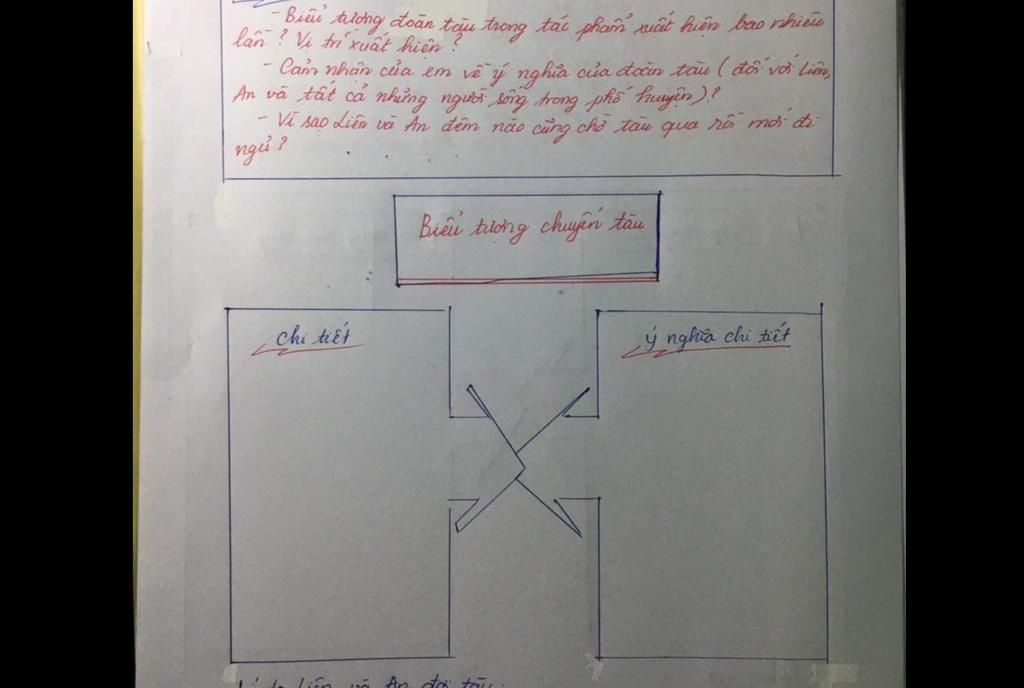 - Biểu tượng đoàn tàu trong tác phẩm xuất hiện bao nhiêu
lần? Vị trí xuất hiện?
- Cảm nhận của em về ý nghĩa của đoàn tàu (đối với Liên,
An và tất cả những người sống trong phố huyện)?
- Vì sao Liên và An đêm nào cũng chờ tàu qua rồi mới đi
ngủ?
Biểu tượng chuyến tàu
Chi tiết
Ý nghĩa chi tiết
Lí do Liên và An đợi tàu: